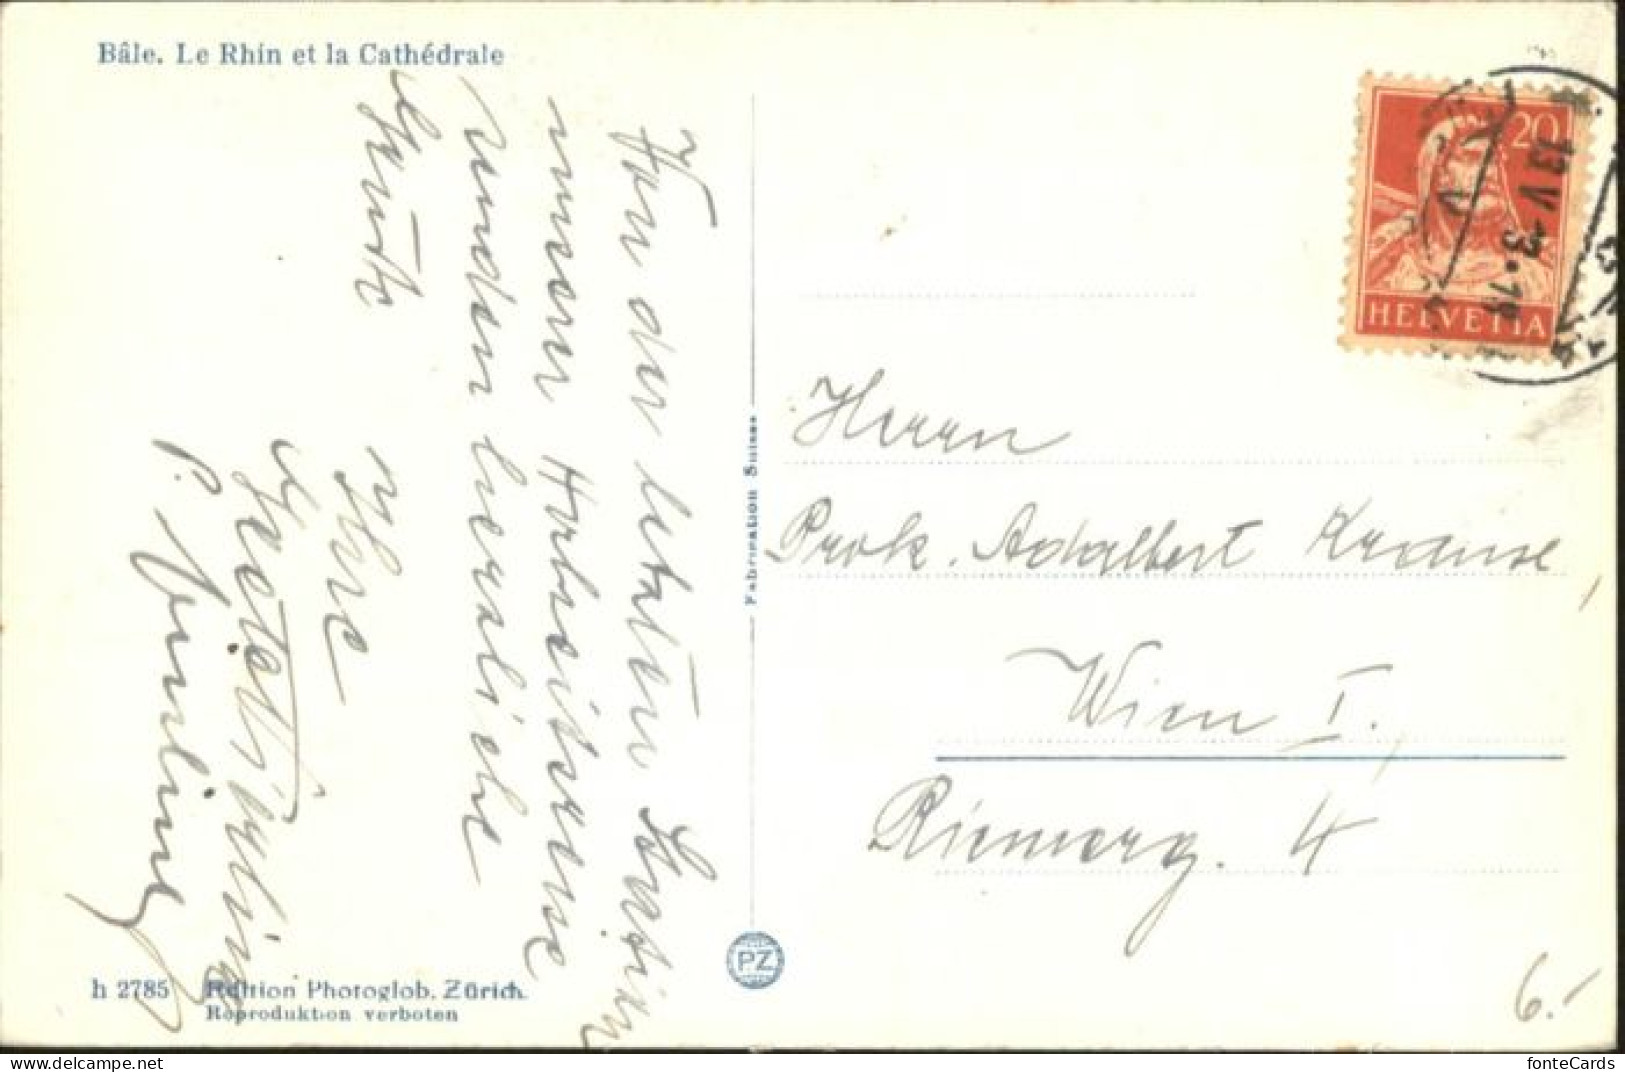 Bâle. Le Rhin et la Cathédrale
Von der letzten Station
unserer Arbeitsreise
senden herzliche
Grüße
Ihre
P.
Fabrication Suisse
PZ
20
HELVETIA
13 V
Herrn
Prok. Adalbert Krause
Wien I.
Riemerg. 4
h 2785 Edition Photoglob, Zürich.
Reproduktion verboten
6.-
fonteCards